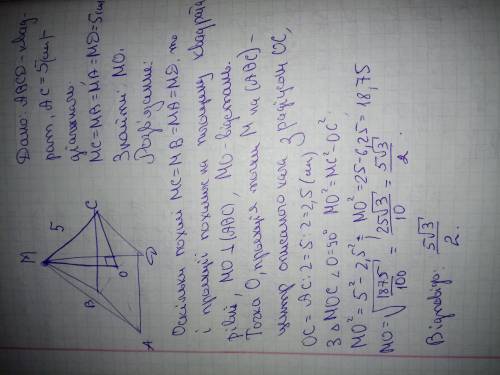 Дано: ABCD - квад-
рат, AC = 5 (см),
діагональ.
MC = MB = MA = MD = 5 см
Знайти: MO.
Розв'язання:
M
5
C
B
O
D
A
Оскільки похилі MC = MB = MA = MD, то
і проекції похилих на площину квадрата
рівні, MO ⊥ (ABC), MO - відстань.
Точка O, проекція точки M на (ABC) -
центр описаного кола з радіусом OC,
OC = AC : 2 = 5 : 2 = 2,5 (см)
З △ MOC ∠O = 90° MO² = MC² - OC²
MO² = 5² - 2,5² ; MO² = 25 - 6,25 = 18,75
MO = √1875/100 = 25√3/10 = 5√3/2.
Відповідь: 5√3/2.